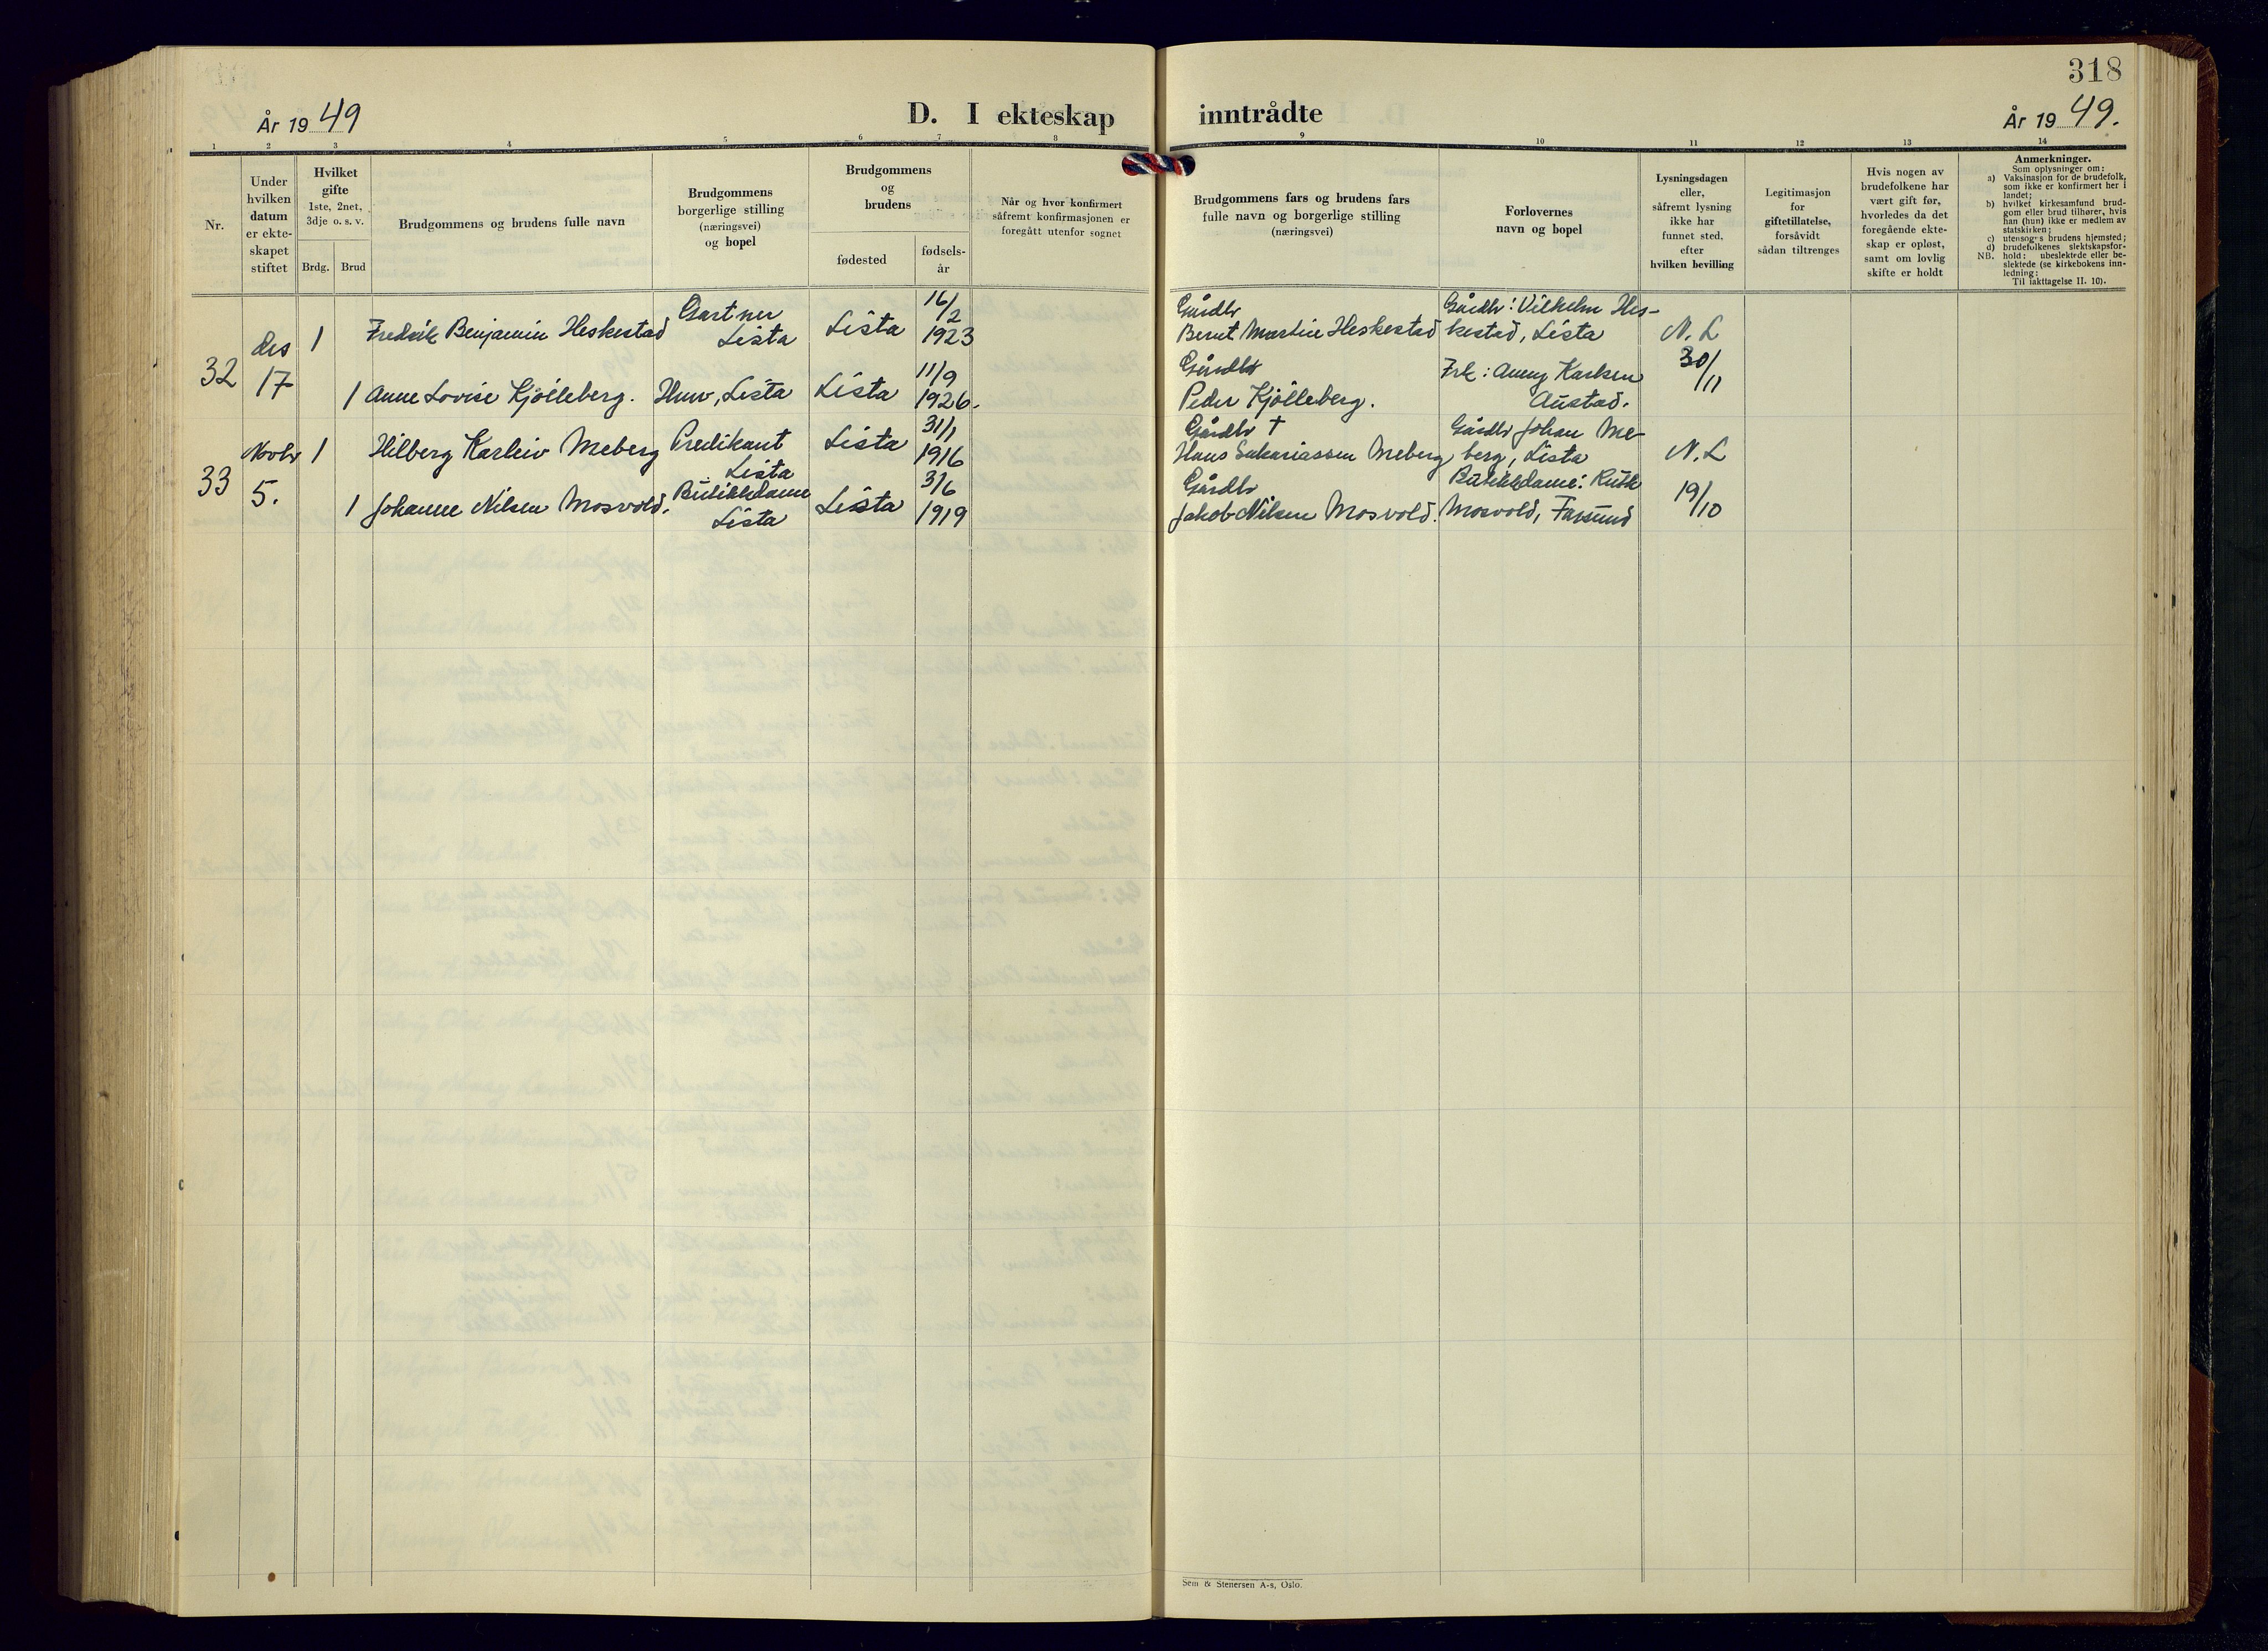 318
År 1949
D. I ekteskap
inntrådte
År 1949.
1 2 3 4 5 6 7 8 9 10 11 12 13 14
Nr.
Under
hvilken
datum
er ekte-
skapet
stiftet
Hvilket
gifte
1ste, 2net,
3dje o. s. v.
Brdg.
Brud
Brudgommens og brudens fulle navn
Brudgommens
borgerlige stilling
(næringsvei)
og bopel
Brudgommens
og
brudens
fødested
fødsels-
år
Når og hvor konfirmert
såfremt konfirmasjonen er
foregått utenfor sognet
Brudgommens fars og brudens fars
fulle navn og borgerlige stilling
(næringsvei)
Forlovernes
navn og bopel
Lysningsdagen
eller,
såfremt lysning
ikke har
funnet sted,
efter
hvilken bevilling
Legitimasjon
for
giftetillatelse,
forsåvidt
sådan tiltrenges
Hvis nogen av
brudefolkene har
vært gift før,
hvorledes da det
foregående ekte-
skap er opløst,
samt om lovlig
skifte er holdt
Anmerkninger.
Som oplysninger om:
a) Vaksinasjon for de brudefolk,
som ikke er konfirmert her i
landet;
b) hvilket kirkesamfund brud-
gom eller brud tilhører, hvis
han (hun) ikke er medlem av
statskirken;
c) utensogns brudens hjemsted;
d) brudefolkenes slektskapsfor-
NB. hold: ubeslektede eller be-
slektede (se kirkebokens inn-
ledning:
Til iakttagelse II. 10).
32
des
17
1
Fredrik Benjamin Heskestad
Gartner
Lista
Lista
16/2
1923
Gårdbr
Bernt Martin Heskestad
Gårdbr: Vilhelm Hes-
kestad, Lista
N. L
30/11
1
Anne Lovise Kjölleberg.
Husv, Lista
Lista
11/9
1926.
Gårdbr
Peder Kjölleberg.
Frk: Anny Karlsen
Austad.
33
Novbr
5.
1
Hilberg Karleiv Meberg
Predikant
Lista
Lista
31/1
1916
Gårdbr †
Hans Sakariassen Meberg
Gårdbr Johan Me-
berg, Lista
N. L
19/10
1
Johanne Nilsen Mosvold.
Butikkdame
Lista
Lista
3/6
1919
Gårdbr
Jakob Nilsen Mosvold.
Butikkdame: Ruth
Mosvold, Farsund
Sem & Stenersen A-s, Oslo.